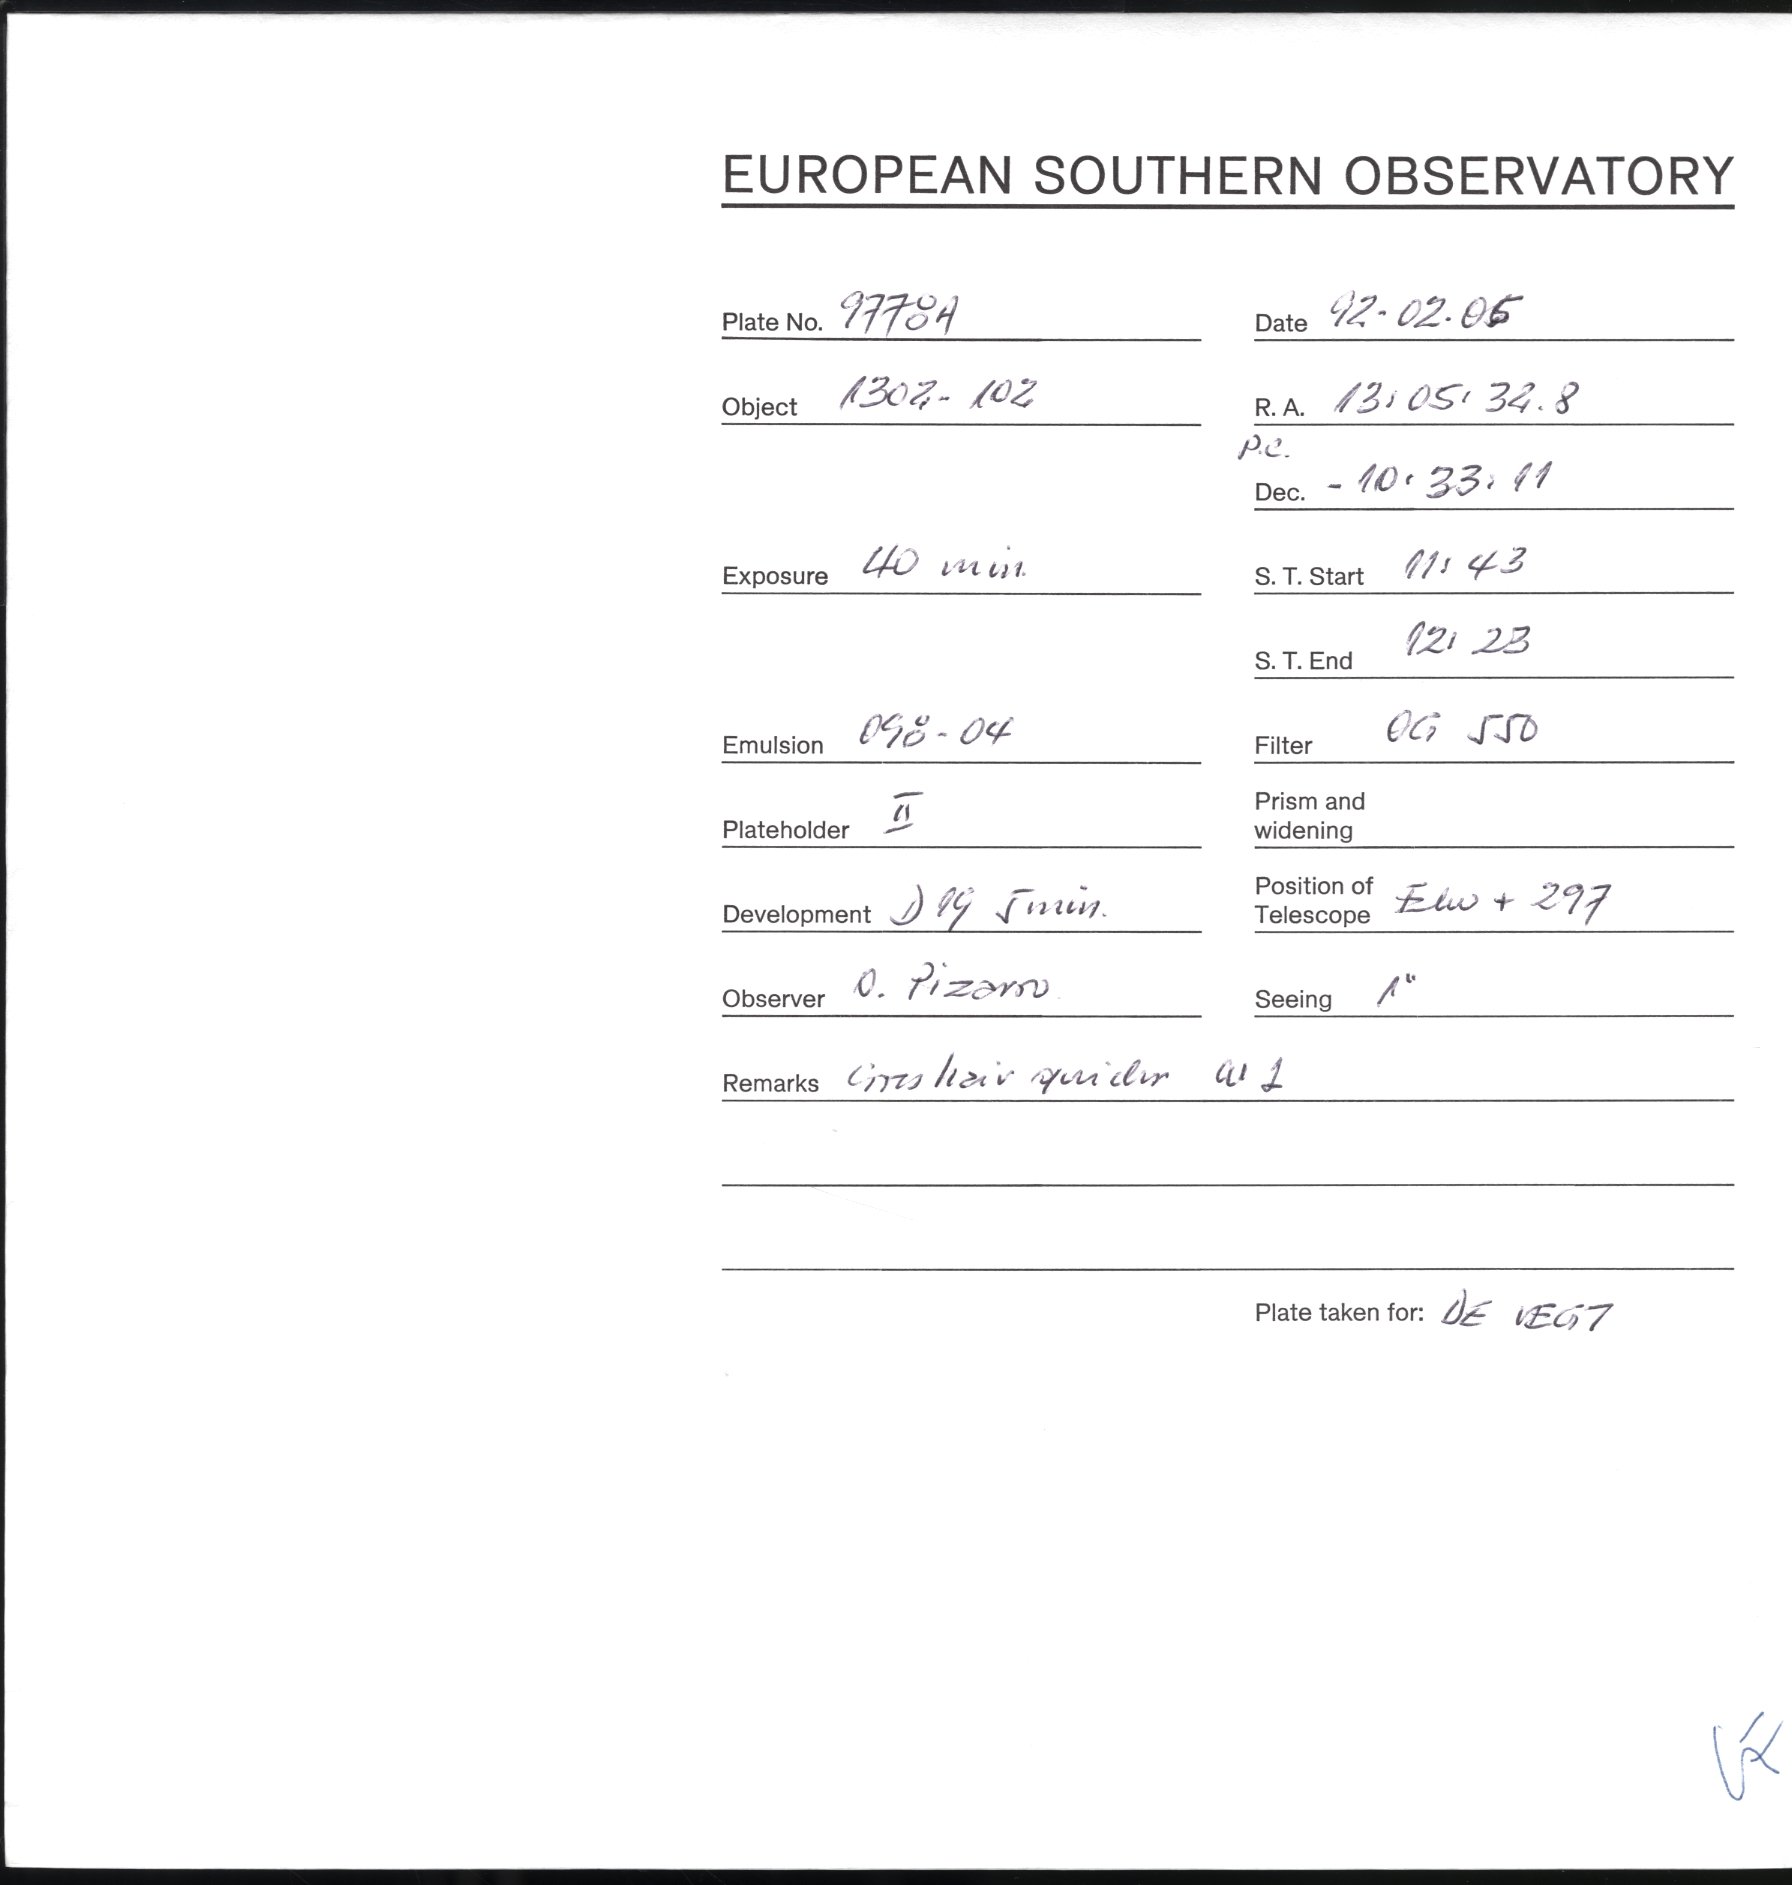 EUROPEAN SOUTHERN OBSERVATORY
Plate No. 9778A
Date 92-02-05
Object 1302-102
R. A. 13:05:32.8
P.C.
Dec. -10:33:11
Exposure 40 min.
S. T. Start 11:43
S. T. End 12:23
Emulsion 098-04
Filter OG 550
Plateholder II
Prism and
widening
Development D19 5 min.
Position of
Telescope + 297
Observer O. Pizarro
Seeing 1"
Remarks Crosshair guider
Plate taken for: DE VEGT